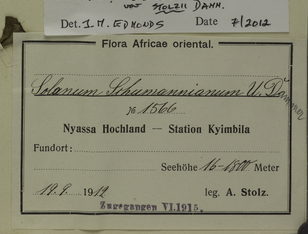 var STOLZII DAMM.
Det. J. M. EDMONDS Date 7/2012
Flora Africae oriental.
Solanum Schumannianum U. Dammer
№ 1566
Nyassa Hochland — Station Kyimbila
Fundort:
Seehöhe 16-1800 Meter
19.9. 1912 leg. A. Stolz.
Zugegangen VI.1915.